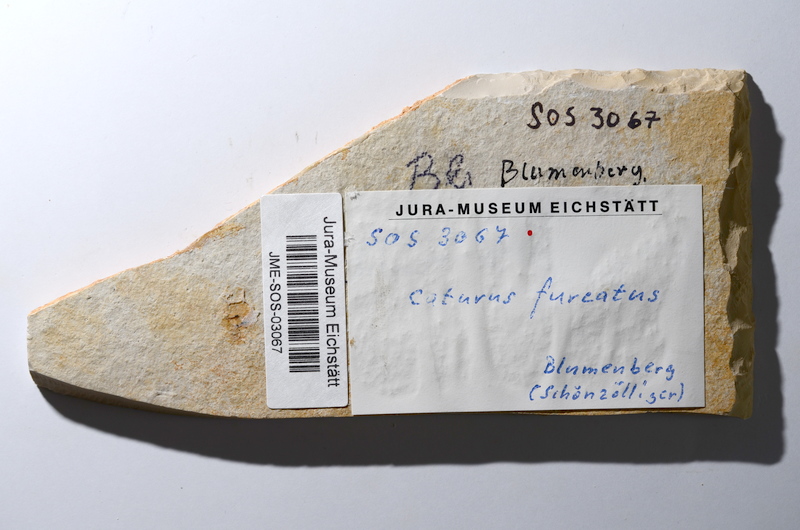 SOS 3067
Be Blumenberg.
JURA-MUSEUM EICHSTÄTT
SOS 3067
Caturus furcatus
Blumenberg
(Schönzölliger)
Jura-Museum Eichstätt
JME-SOS-03067